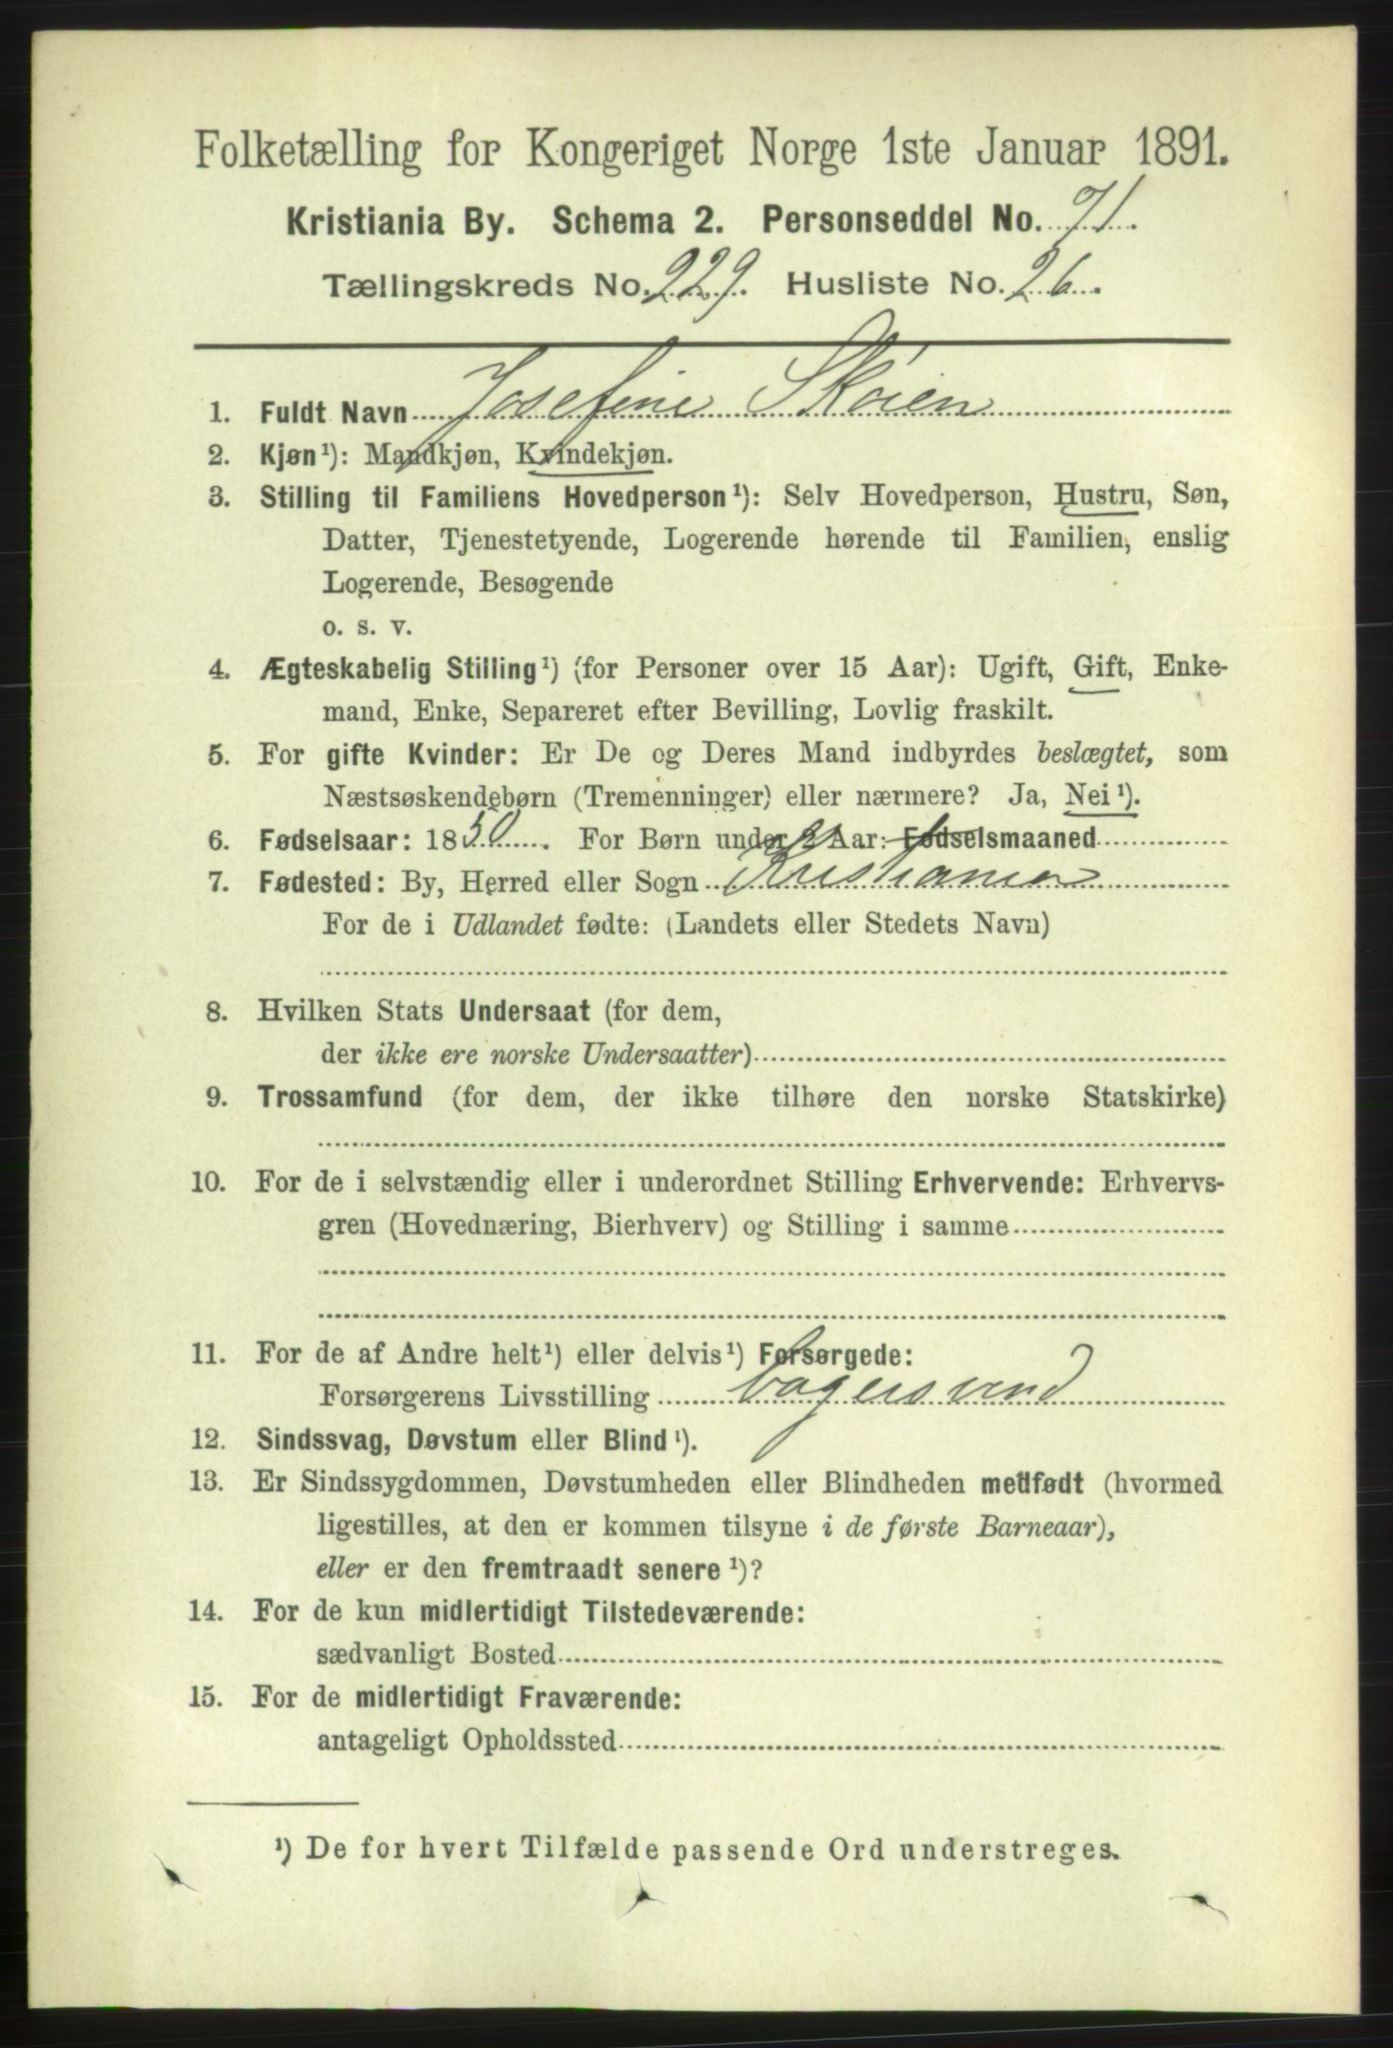 Folketælling for Kongeriget Norge 1ste Januar 1891.
Kristiania By. Schema 2. Personseddel No. 71.
Tællingskreds No. 229. Husliste No. 26.
1. Fuldt Navn Josefine Skøien
2. Kjøn¹): Mandkjøn, Kvindekjøn.
3. Stilling til Familiens Hovedperson¹): Selv Hovedperson, Hustru, Søn,
Datter, Tjenestetyende, Logerende hørende til Familien, enslig
Logerende, Besøgende
o. s. v.
4. Ægteskabelig Stilling¹) (for Personer over 15 Aar): Ugift, Gift, Enke-
mand, Enke, Separeret efter Bevilling, Lovlig fraskilt.
5. For gifte Kvinder: Er De og Deres Mand indbyrdes beslægtet, som
Næstsøskendebørn (Tremenninger) eller nærmere? Ja, Nei¹).
6. Fødselsaar: 1850. For Børn under 2 Aar: Fødselsmaaned
7. Fødested: By, Herred eller Sogn Kristiania
For de i Udlandet fødte: (Landets eller Stedets Navn)
8. Hvilken Stats Undersaat (for dem,
der ikke ere norske Undersaatter)
9. Trossamfund (for dem, der ikke tilhøre den norske Statskirke)
10. For de i selvstændig eller i underordnet Stilling Erhvervende: Erhvervs-
gren (Hovednæring, Bierhverv) og Stilling i samme
11. For de af Andre helt¹) eller delvis¹) Forsørgede:
Forsørgerens Livsstilling bagersvend
12. Sindssvag, Døvstum eller Blind¹).
13. Er Sindssygdommen, Døvstumheden eller Blindheden medfødt (hvormed
ligestilles, at den er kommen tilsyne i de første Barneaar),
eller er den fremtraadt senere¹)?
14. For de kun midlertidigt Tilstedeværende:
sædvanligt Bosted
15. For de midlertidigt Fraværende:
antageligt Opholdssted
¹) De for hvert Tilfælde passende Ord understreges.